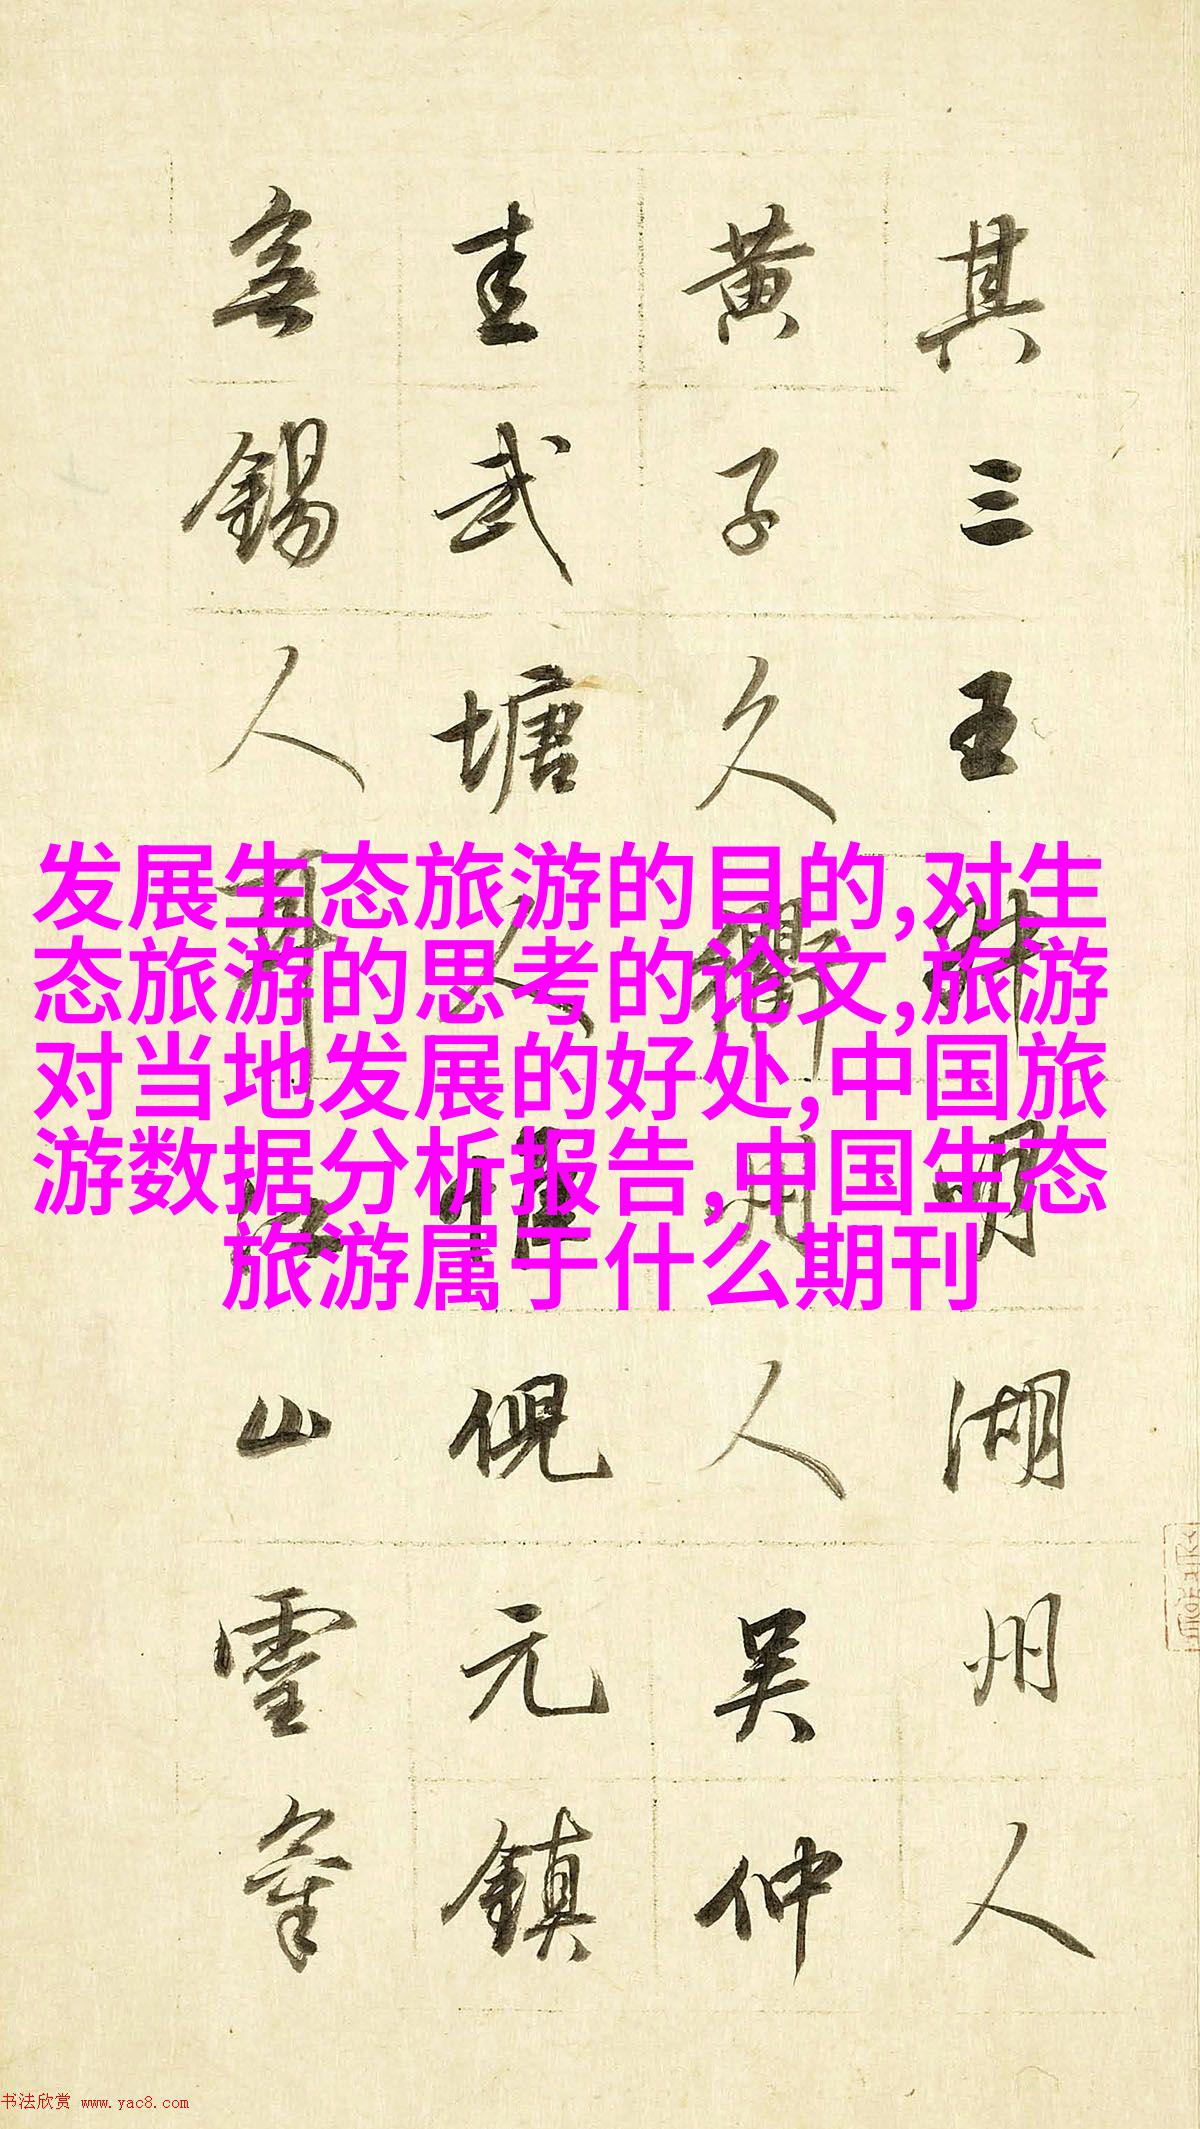 其三王叔明湖州人
黄子久衢州人吴仲
圭武塘人惟倪元鎮
無錫人耳江山靈氣
发展生态旅游的目的,对生
态旅游的思考的论文,旅游
对当地发展的好处,中国旅
游数据分析报告,中国生态
旅游属于什么期刊
书法欣赏 www.yac8.com